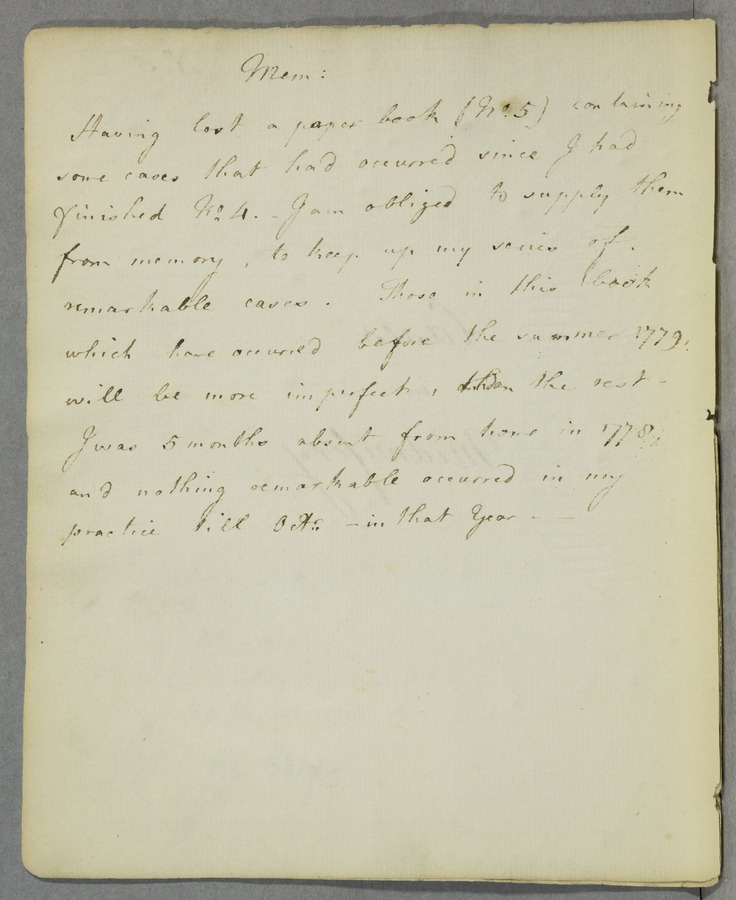 Mem:
Having lost a paper book (No. 5) containing
some cases that had occurred since I had
finished No. 4. - I am obliged to supply them
from memory, to keep up my series of.
remarkable cases. Those in this book
which have occurred before the summer 1779,
will be more imperfect, than the rest -
I was 5 months absent from home in 1778,
and nothing remarkable occurred in my
practice till Octr. - in that Year -